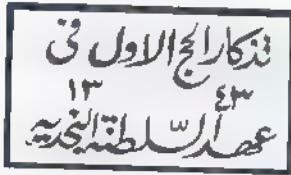 تذكار الحج الاول فى
١٣ ٤٣
عهد السلطنة النجديه